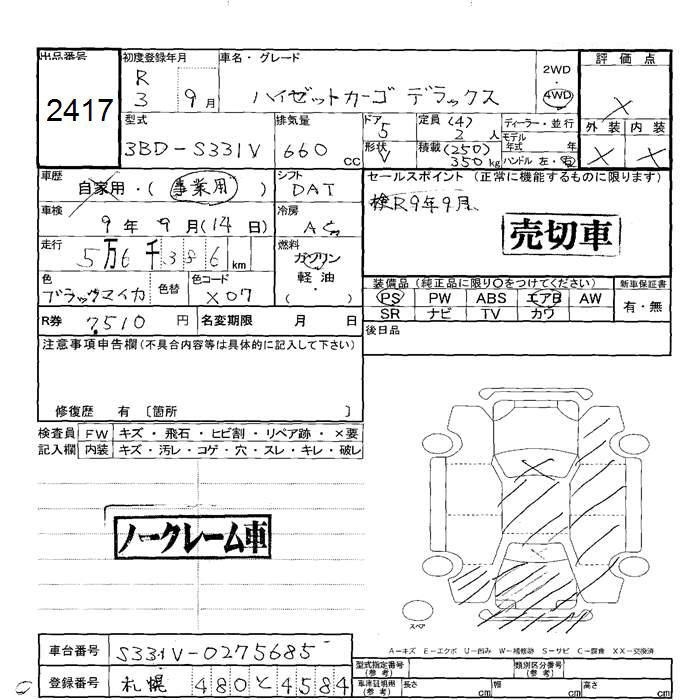 出品番号 初度登録年月 車名・グレード 評価点
2417
R 3 9月 ハイゼットカーゴ デラックス 2WD 4WD ×
型式 排気量 ドア 定員 (4) ディーラー・並行 外装 内装
3BD-S331V 660cc 5 2人 モデル年式 年
形状 V 積載 (250) 350kg ハンドル 左・右 × ×
車歴 シフト セールスポイント (正常に機能するものに限ります)
自家用・(事業用) DAT 検R9年9月
車検 冷房
9年9月(14日) AC
売切車
走行 燃料
5万6千386km ガソリン
軽油
( )
色 色替 色コード 装備品 (純正品に限り〇をつけてください) 新車保証書
ブラックマイカ X07 PS PW ABS エアB AW 有・無
SR ナビ TV カワ
R券 7,510円 名変期限 月 日
後日品
注意事項申告欄(不具合内容等は具体的に記入して下さい)
修復歴 有 〔箇所 〕
検査員 FW キズ・飛石・ヒビ割・リペア跡・×要
記入欄 内装 キズ・汚レ・コゲ・穴・スレ・キレ・破レ
ノークレーム車
スペア
A-キズ E-エクボ U-凹み W-補修跡 S-サビ C-腐食 XX-交換済
車台番号 S331V-0275685
型式指定番号(参考) 類別区分番号(参考)
登録番号 札幌 480 と 4584
車庫証明用(参考) 長さ cm 幅 cm 高さ cm